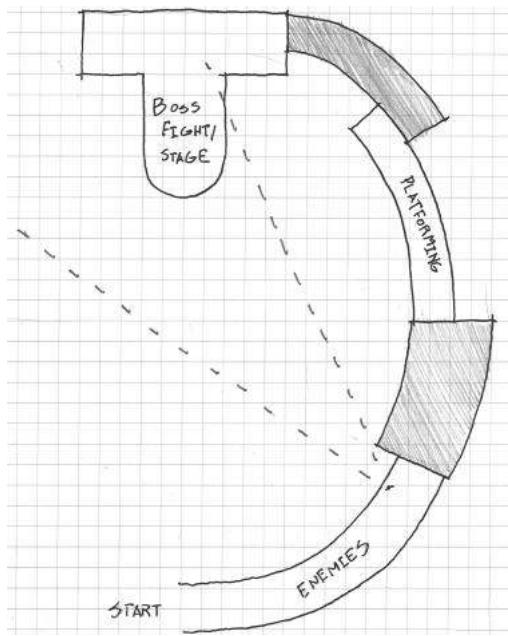 BOSS
FIGHT/
STAGE
PLATFORMING
ENEMIES
START